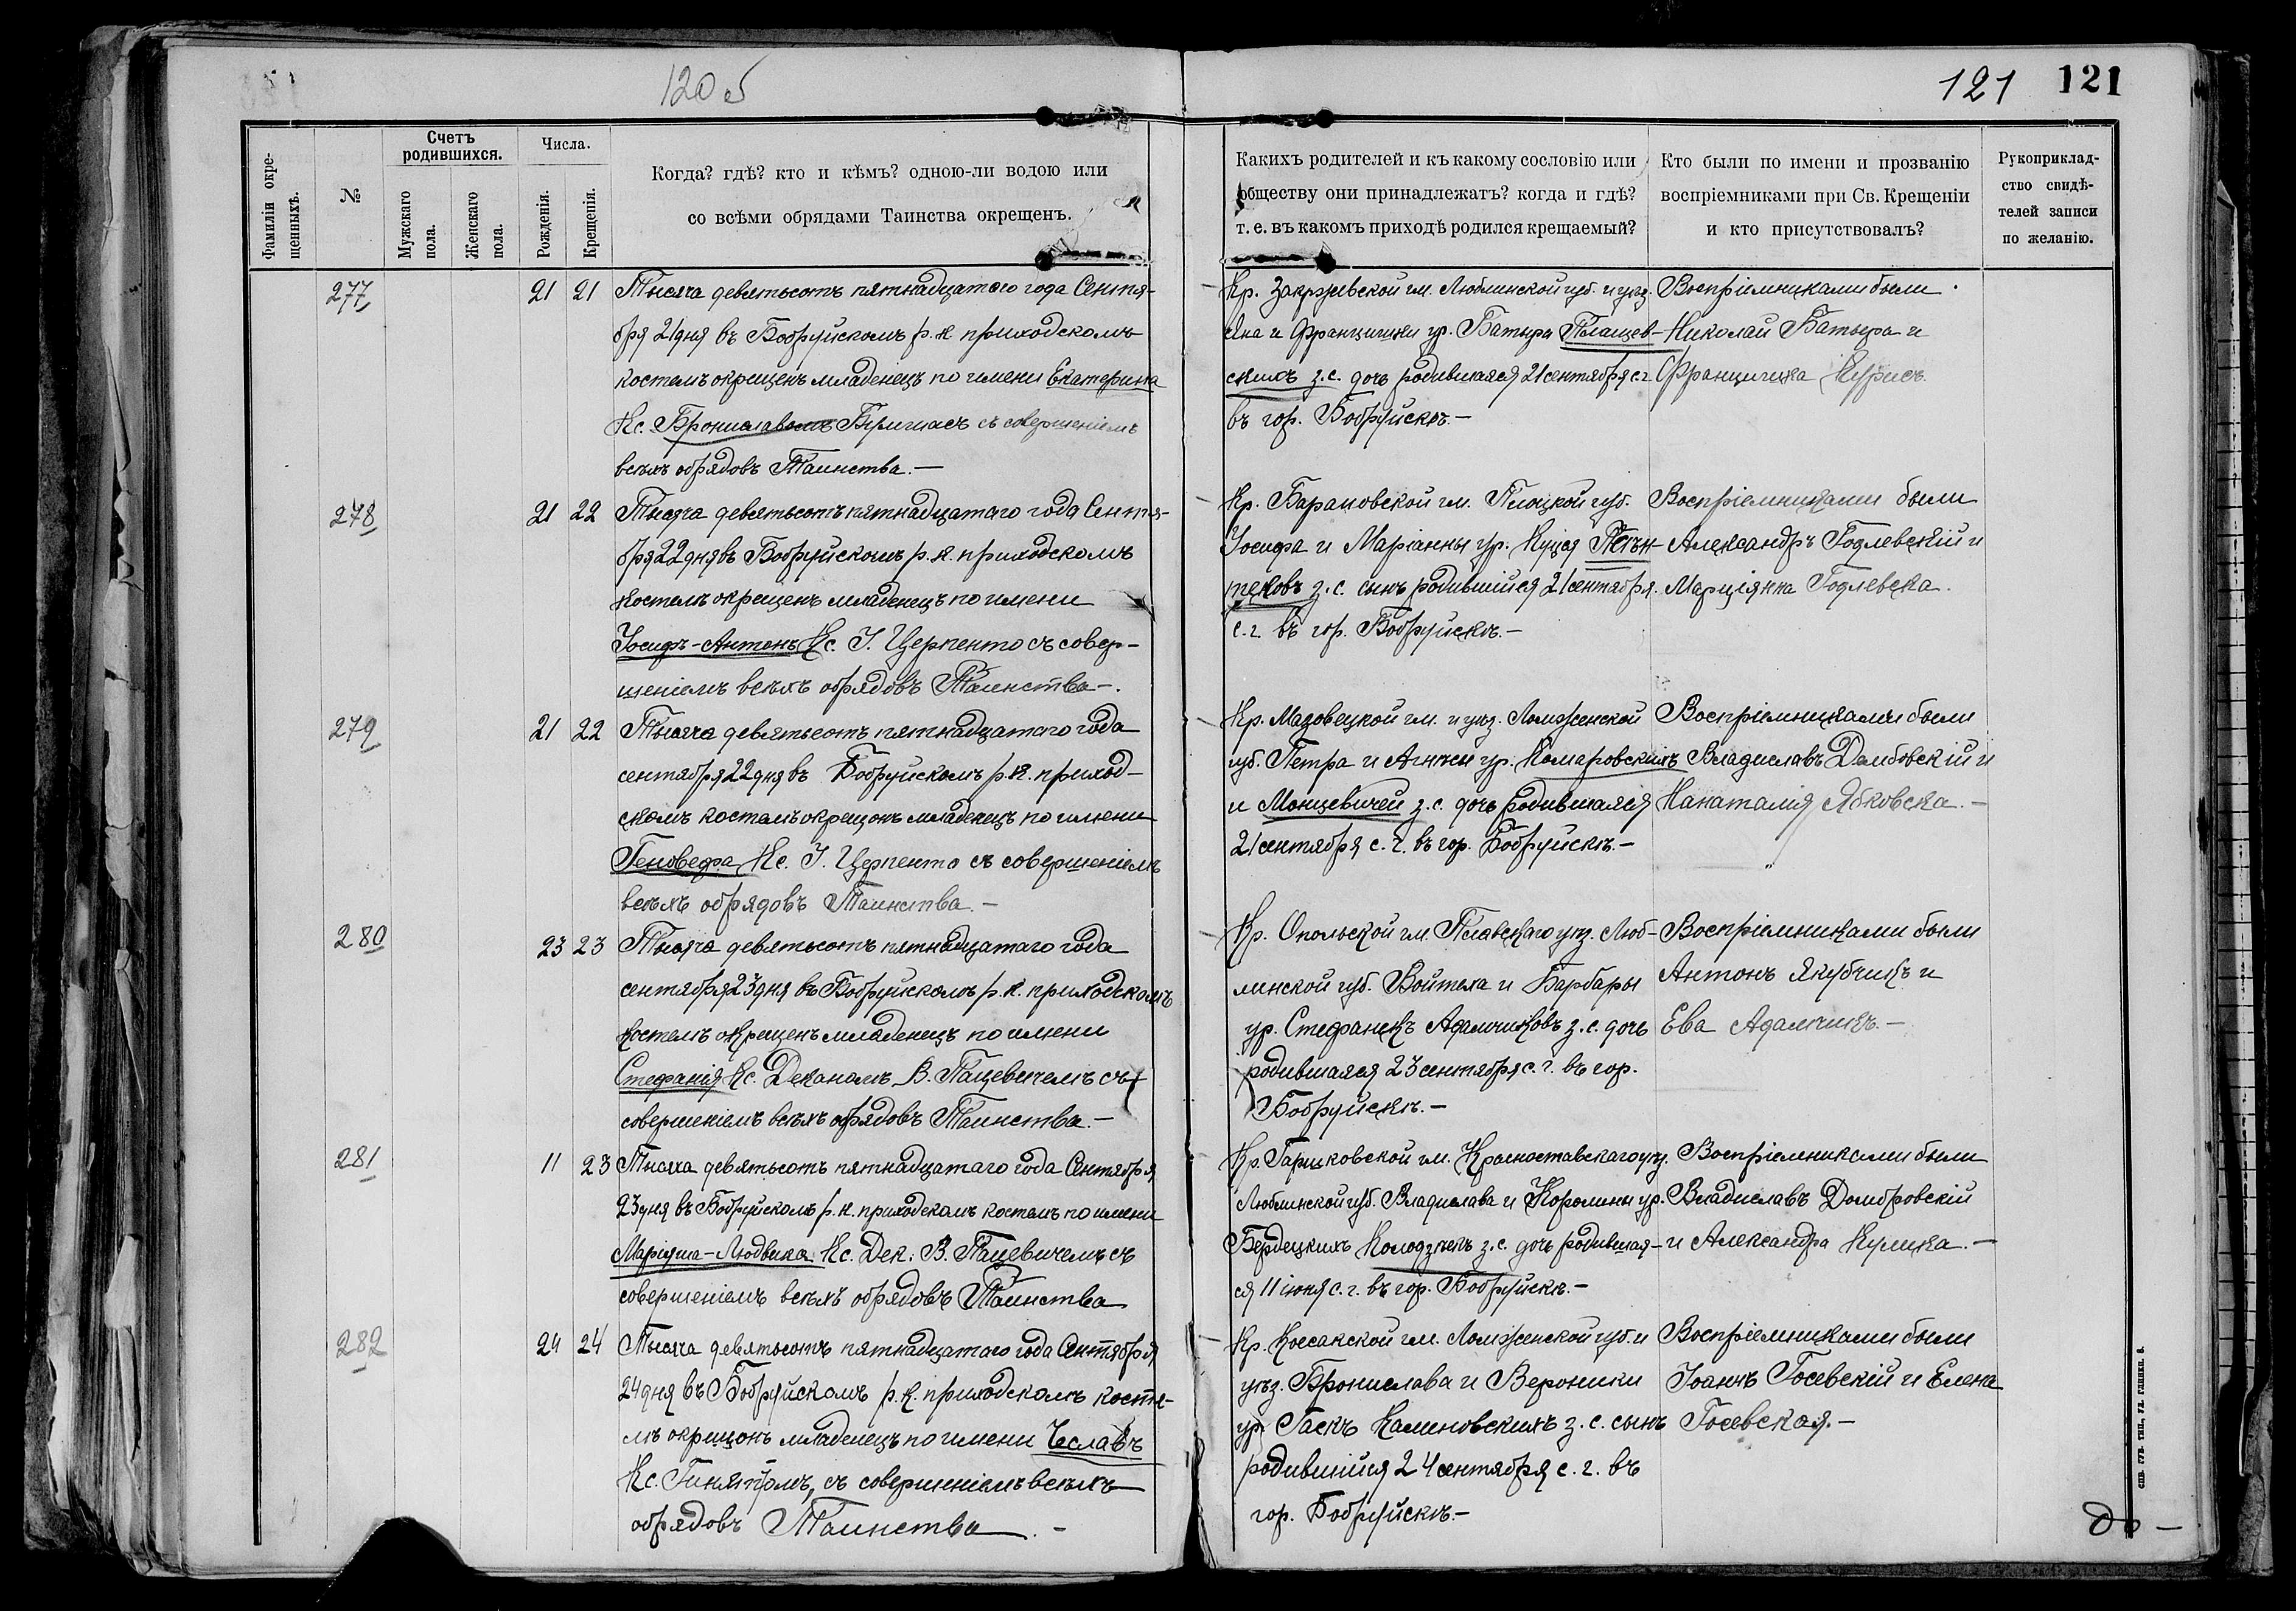 120 об
121 121
Фамиліи окре-
щенныхъ.
№
Счетъ
родившихся.
Мужскаго
пола.
Женскаго
пола.
Числа.
Рожденія.
Крещенія.
Когда? гдѣ? кто и кѣмъ? одною-ли водою или
со всѣми обрядами Таинства окрещенъ.
Какихъ родителей и къ какому сословію или
обществу они принадлежатъ? когда и гдѣ?
т. е. въ какомъ приходѣ родился крещаемый?
Кто были по имени и прозванію
воспріемниками при Св. Крещеніи
и кто присутствовалъ?
Рукоприклад-
ство свидѣ-
телей записи
по желанію.
277 21 21 Тысяча девятьсотъ пятнадцатого года Сентя-
бря 21 дня въ Бобруйскомъ р. к. приходскомъ
костелѣ окрещенъ младенецъ по имени Екатерина
Кс. Брониславомъ съ совершеніемъ
всѣхъ обрядовъ Таинства.—
Кр. Закржевской гм. Люблинской губ. и уѣз.
Яна и Францишки ур. Батыра
скихъ з. с. дочь родившаяся 21 сентября с. г.
въ гор. Бобруйскѣ.—
Воспріемниками были
Николай Батыра и
Францишка Курисъ.
278 21 22 Тысяча девятьсотъ пятнадцатаго года Сентя-
бря 22 дня въ Бобруйскомъ р. к. приходскомъ
костелѣ окрещенъ младенецъ по имени
Іосифъ-Антонъ Кс. І. Церпенто съ совер-
шеніемъ всѣхъ обрядовъ Таинства—.
Кр. Барановской гм. Плоцкой губ.
Іосифа и Маріанны ур. Куцея Пённ-
тековъ з. с. сынъ родившійся 21 сентября
с. г. въ гор. Бобруйскѣ.—
Воспріемниками были
Александръ Годлевскій и
Марціянна Годлевска.
279 21 22 Тысяча девятьсотъ пятнадцатого года
сентября 22 дня въ Бобруйскомъ р. к. приход-
скомъ костелѣ окрещонъ младенецъ по имени
Геновефа Кс. І. Церпенто съ совершеніемъ
всѣхъ обрядовъ Таинства.—
Кр. Мазовецкой гм. и уѣз. Ломженской
губ. Петра и Агнѣи ур. Комаровскихъ
и Монцевичей з. с. дочь родившаяся
21 сентября с. г. въ гор. Бобруйскѣ.—
Воспріемниками были
Владиславъ Домбовскій и
Канаталія Ябковска.—
280 23 23 Тысяча девятьсотъ пятнадцатаго года
сентября 23 дня въ Бобруйскомъ р. к. приходскомъ
костелѣ окрещенъ младенецъ по имени
Стефанія Кс. Деканомъ В. Пацевичемъ съ
совершеніемъ всѣхъ обрядовъ Таинства.—
Кр. Опольской гм. Плавскаго уѣз. Люб-
линской губ. Войтеха и Барбары
ур. Стефанекъ Адамчиковъ з. с. дочь
родившаяся 23 сентября с. г. въ гор.
Бобруйскѣ.—
Воспріемниками были
Антонъ Якубчикъ и
Ева Адамчикъ.—
281 11 23 Тысяча девятьсотъ пятнадцатаго года Сентября
23 дня въ Бобруйскомъ р. к. приходскомъ костелѣ по имени
Маріуша-Людвика Кс. Дек. В. Пацевичемъ съ
совершеніемъ всѣхъ обрядовъ Таинства
Кр. Гаршковской гм. Красноставскаго уѣз.
Люблинской губ. Владислава и Королины ур.
Бердецкихъ Колодзѣекъ з. с. дочь родившая-
ся 11 іюня с. г. въ гор. Бобруйскѣ.—
Воспріемниками были
Владиславъ Домбровскій
и Александра Кулика.—
282 24 24 Тысяча девятьсотъ пятнадцатаго года Сентября
24 дня въ Бобруйскомъ р. к. приходскомъ косте-
лѣ окрещонъ младенецъ по имени Чеславъ
Кс. съ совершеніемъ всѣхъ
обрядовъ Таинства.—
Кр. Коссакской гм. Ломженской губ. и
уѣз. Бронислава и Вероники
ур. Гаскъ Калиновскихъ з. с. сынъ
родившійся 24 сентября с. г. въ
гор. Бобруйскѣ.—
Воспріемниками были
Іоаннъ Госевскій и Елена
Госевская.—
СПБ. ГУБ. ТИП.